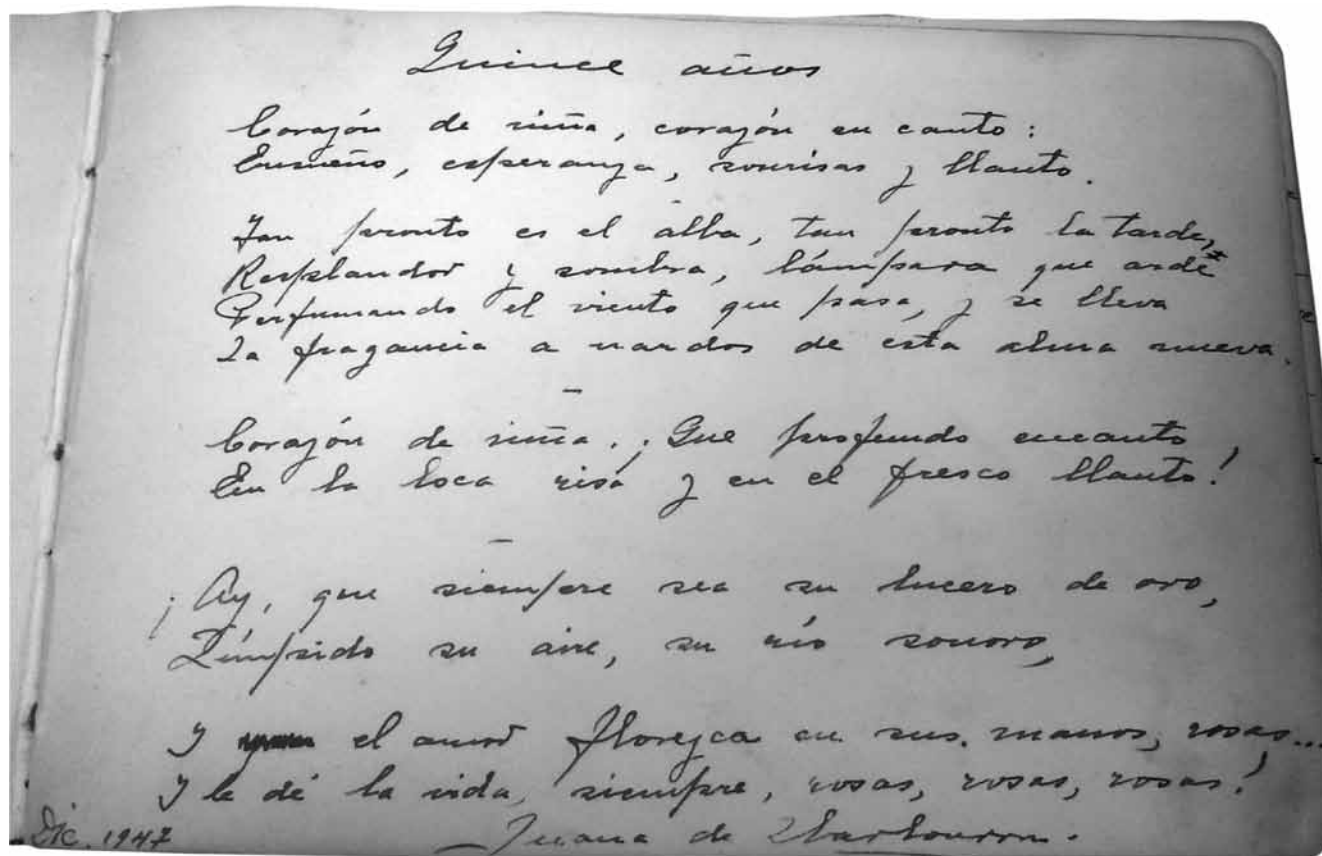 Quince años
Corazón de niña, corazón en canto:
Ensueño, esperanza, sonrisas y llanto.
Tan pronto es el alba, tan pronto la tarde,
Resplandor y sombra, lámpara que arde
Perfumando el viento que pasa, y se lleva
La fragancia a nardos de esta alma nueva.
Corazón de niña. ¡Que profundo encanto,
En la loca risa y en el fresco llanto!
¡Ay, que siempre sea su lucero de oro,
Límpido su aire, su río sonoro,
Y el amor florezca en sus manos, rosas...
Y le dé la vida, siempre, rosas, rosas, rosas!
Dic. 1947
Juana de Ibarbourou.